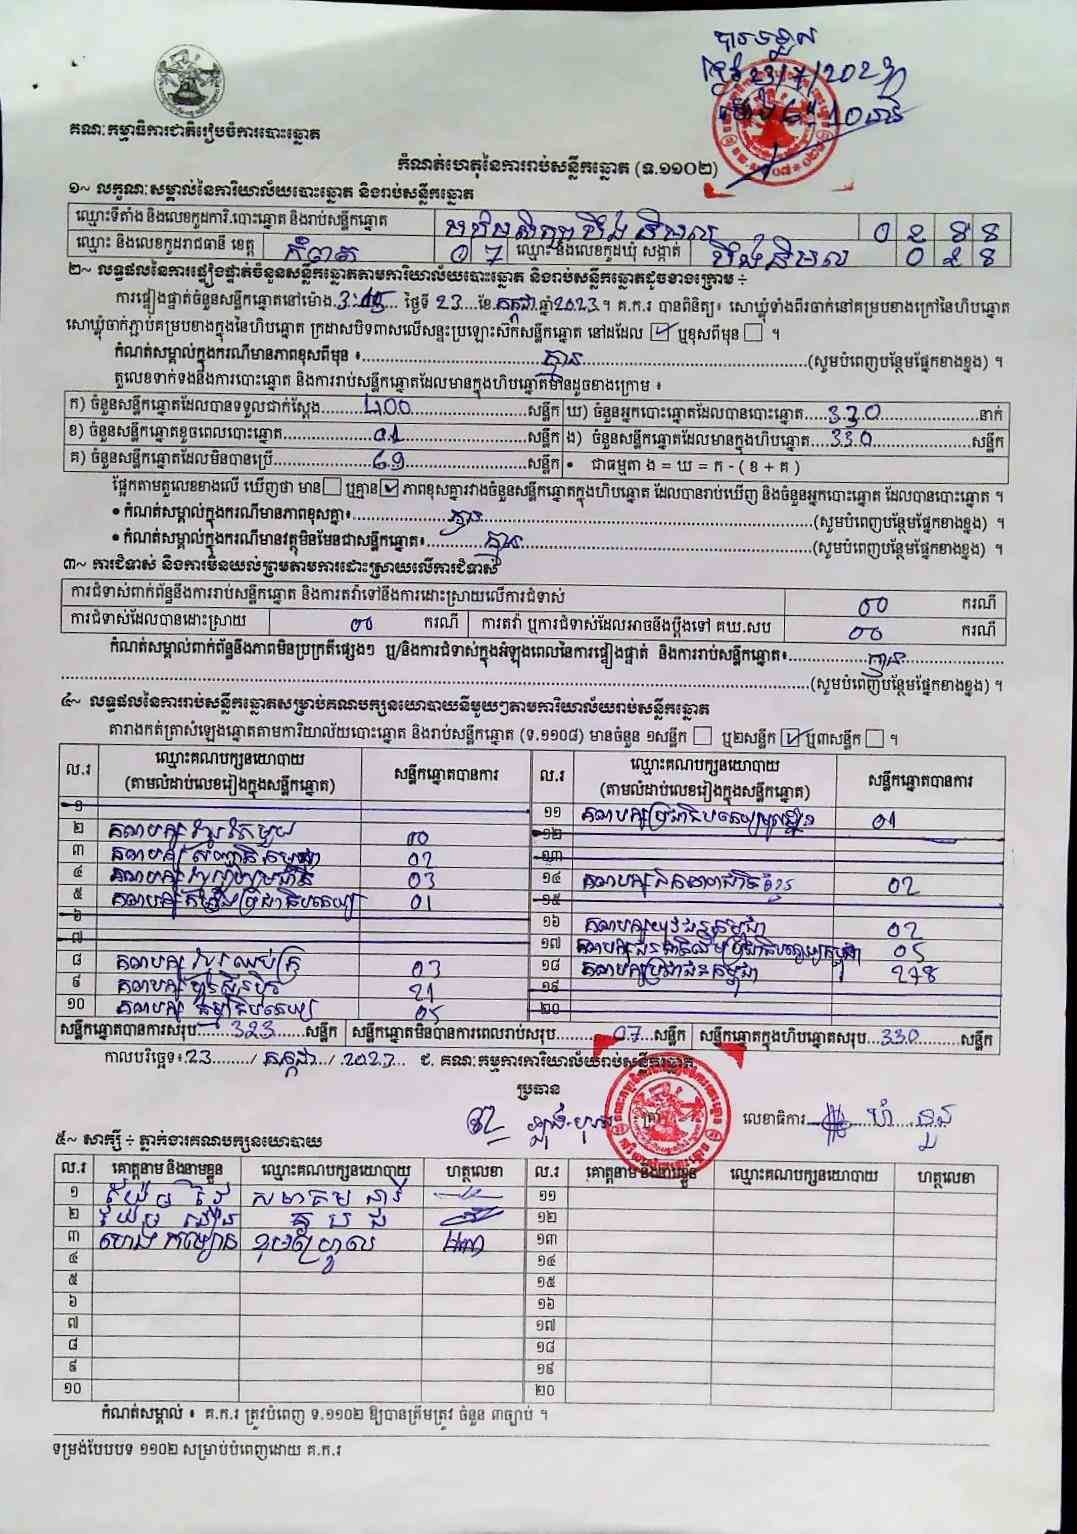 បានទទួល
ថ្ងៃទី 23/7/2023
ម៉ោង 6:10 នាទី
គណៈកម្មាធិការជាតិរៀបចំការបោះឆ្នោត
កំណត់ហេតុនៃការរាប់សន្លឹកឆ្នោត (ទ.១១០២)
១~ លក្ខណៈសម្គាល់នៃការិយាល័យបោះឆ្នោត និងរាប់សន្លឹកឆ្នោត
ឈ្មោះទីតាំង និងលេខកូដការិ.បោះឆ្នោត និងរាប់សន្លឹកឆ្នោត
ឈ្មោះ និងលេខកូដរាជធានី ខេត្ត កំពត 0 7 ឈ្មោះ និងលេខកូដឃុំ សង្កាត់ បឹងនិមល
២~ លទ្ធផលនៃការផ្ទៀងផ្ទាត់ចំនួនសន្លឹកឆ្នោតតាមការិយាល័យបោះឆ្នោត និងរាប់សន្លឹកឆ្នោតដូចខាងក្រោម ÷
ការផ្ទៀងផ្ទាត់ចំនួនសន្លឹកឆ្នោតនៅម៉ោង ថ្ងៃទី 23 ខែ កក្កដា ឆ្នាំ 2023 ។ គ.ក.រ បានពិនិត្យ៖ សោឃ្លុំទាំងពីរចាក់នៅគម្របខាងក្រៅនៃហិបឆ្នោត
សោឃ្លុំចាក់ភ្ជាប់គម្របខាងក្នុងនៃហិបឆ្នោត ក្រដាសបិទពាសលើសន្ទះប្រឡោះសិកសន្លឹកឆ្នោត នៅដដែល ☑ ឬខុសពីមុន ☐ ។
កំណត់សម្គាល់ក្នុងករណីមានភាពខុសពីមុន ៖ គ្មាន (សូមបំពេញបន្ថែមផ្នែកខាងខ្នង) ។
តួលេខទាក់ទងនឹងការបោះឆ្នោត និងការរាប់សន្លឹកឆ្នោតដែលមានក្នុងហិបឆ្នោតមានដូចខាងក្រោម ៖
ក) ចំនួនសន្លឹកឆ្នោតដែលបានទទួលជាក់ស្តែង 400 សន្លឹក ឃ) ចំនួនអ្នកបោះឆ្នោតដែលបានបោះឆ្នោត 330 នាក់
ខ) ចំនួនសន្លឹកឆ្នោតខូចពេលបោះឆ្នោត 01 សន្លឹក ង) ចំនួនសន្លឹកឆ្នោតដែលមានក្នុងហិបឆ្នោត 330 សន្លឹក
គ) ចំនួនសន្លឹកឆ្នោតដែលមិនបានប្រើ 69 សន្លឹក • ជាធម្មតា ង = ឃ = ក - ( ខ + គ )
ផ្អែកតាមតួលេខខាងលើ ឃើញថា មាន ☐ ឬគ្មាន ☑ ភាពខុសគ្នារវាងចំនួនសន្លឹកឆ្នោតក្នុងហិបឆ្នោត ដែលបានរាប់ឃើញ និងចំនួនអ្នកបោះឆ្នោត ដែលបានបោះឆ្នោត ។
• កំណត់សម្គាល់ក្នុងករណីមានភាពខុសគ្នា៖ គ្មាន (សូមបំពេញបន្ថែមផ្នែកខាងខ្នង) ។
• កំណត់សម្គាល់ក្នុងករណីមានវត្ថុមិនមែនជាសន្លឹកឆ្នោត៖ គ្មាន (សូមបំពេញបន្ថែមផ្នែកខាងខ្នង) ។
៣~ ការជំទាស់ និងការមិនយល់ព្រមតាមការដោះស្រាយលើការជំទាស់
ការជំទាស់ពាក់ព័ន្ធនឹងការរាប់សន្លឹកឆ្នោត និងការតវ៉ាទៅនឹងការដោះស្រាយលើការជំទាស់ 00 ករណី
ការជំទាស់ដែលបានដោះស្រាយ 00 ករណី ការតវ៉ា ឬការជំទាស់ដែលអាចនឹងប្តឹងទៅ គឃ.សប 00 ករណី
កំណត់សម្គាល់ពាក់ព័ន្ធនឹងភាពមិនប្រក្រតីផ្សេងៗ ឬ/និងការជំទាស់ក្នុងអំឡុងពេលនៃការផ្ទៀងផ្ទាត់ និងការរាប់សន្លឹកឆ្នោត៖ គ្មាន
(សូមបំពេញបន្ថែមផ្នែកខាងខ្នង) ។
៤~ លទ្ធផលនៃការរាប់សន្លឹកឆ្នោតសម្រាប់គណបក្សនយោបាយនីមួយៗតាមការិយាល័យរាប់សន្លឹកឆ្នោត
តារាងកត់ត្រាសំឡេងឆ្នោតតាមការិយាល័យបោះឆ្នោត និងរាប់សន្លឹកឆ្នោត (ទ.១១០៨) មានចំនួន ១សន្លឹក ☐ ឬ២សន្លឹក ☑ ឬ៣សន្លឹក ☐ ។
ល.រ ឈ្មោះគណបក្សនយោបាយ (តាមលំដាប់លេខរៀងក្នុងសន្លឹកឆ្នោត) សន្លឹកឆ្នោតបានការ ល.រ ឈ្មោះគណបក្សនយោបាយ (តាមលំដាប់លេខរៀងក្នុងសន្លឹកឆ្នោត) សន្លឹកឆ្នោតបានការ
១ ១១ គណបក្សប្រជាធិបតេយ្យមូលដ្ឋាន 01
២ គណបក្ស 00 ១២
៣ គណបក្ស កម្ពុជា 02 ១៣
៤ គណបក្ស 03 ១៤ គណបក្ស ខ្មែរ 02
៥ គណបក្ស ប្រជាធិបតេយ្យ 01 ១៥
៦ ១៦ គណបក្សយុវជនកម្ពុជា 02
៧ ១៧ គណបក្សជនជាតិដើមប្រជាធិបតេយ្យកម្ពុជា 05
៨ គណបក្ស 03 ១៨ គណបក្សប្រជាជនកម្ពុជា 278
៩ គណបក្ស ហ្វ៊ុនស៊ិនប៉ិច 21 ១៩
១០ គណបក្ស ធម្មាធិបតេយ្យ 05 ២០
សន្លឹកឆ្នោតបានការសរុប 323 សន្លឹក សន្លឹកឆ្នោតមិនបានការពេលរាប់សរុប 07 សន្លឹក សន្លឹកឆ្នោតក្នុងហិបឆ្នោតសរុប 330 សន្លឹក
កាលបរិច្ឆេទ៖ 23 / កក្កដា / 2023 ជ. គណៈកម្មការការិយាល័យរាប់សន្លឹកឆ្នោត
ប្រធាន
លេខាធិការ
៥~ សាក្សី ÷ ភ្នាក់ងារគណបក្សនយោបាយ
ល.រ គោត្តនាម និងនាមខ្លួន ឈ្មោះគណបក្សនយោបាយ ហត្ថលេខា ល.រ គោត្តនាម និងនាមខ្លួន ឈ្មោះគណបក្សនយោបាយ ហត្ថលេខា
១ ១១
២ គ ប ជ ១២
៣ ១៣
៤ ១៤
៥ ១៥
៦ ១៦
៧ ១៧
៨ ១៨
៩ ១៩
១០ ២០
កំណត់សម្គាល់ ៖ គ.ក.រ ត្រូវបំពេញ ទ.១១០២ ឱ្យបានត្រឹមត្រូវ ចំនួន ៣ច្បាប់ ។
ទម្រង់បែបបទ ១១០២ សម្រាប់បំពេញដោយ គ.ក.រ